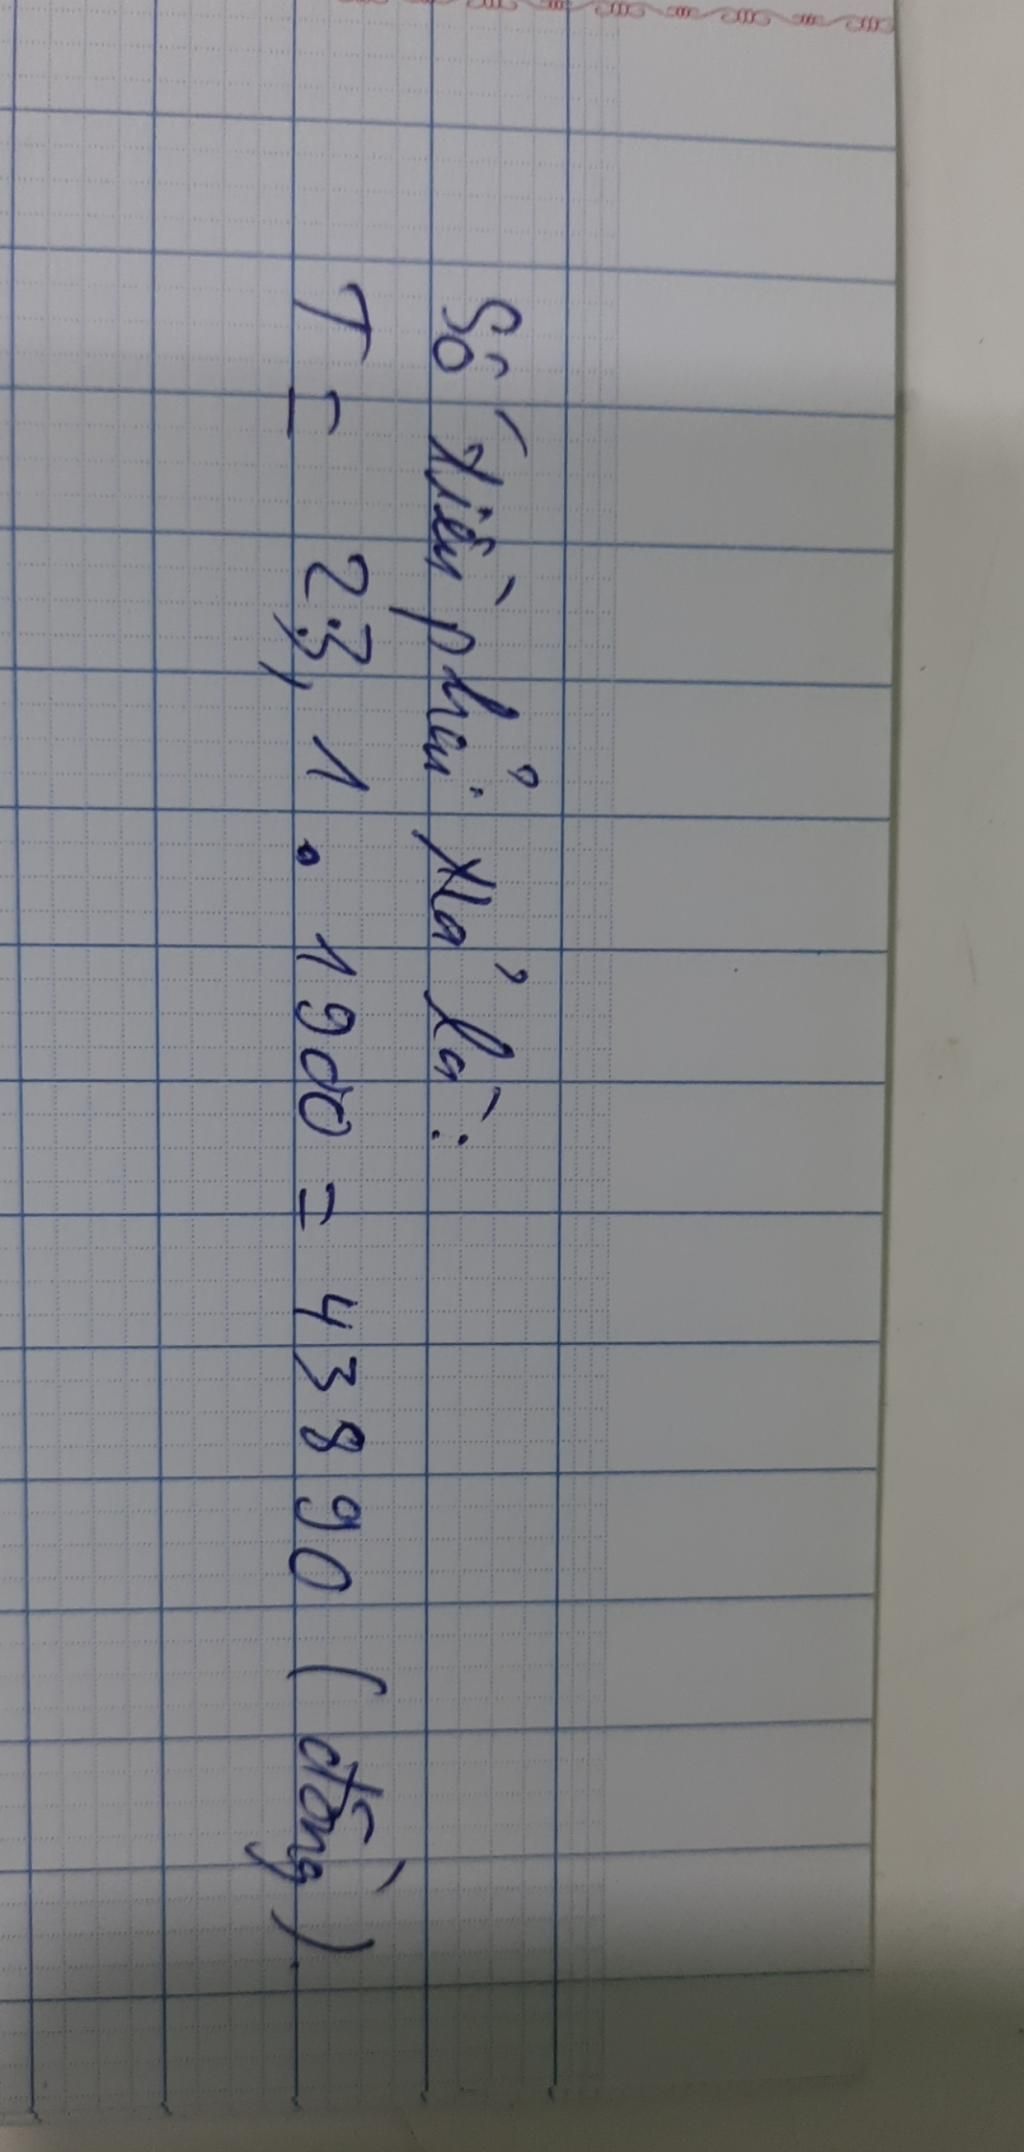 Số tiền phải trả là:
T = 23,1 . 1900 = 43890 (đồng).